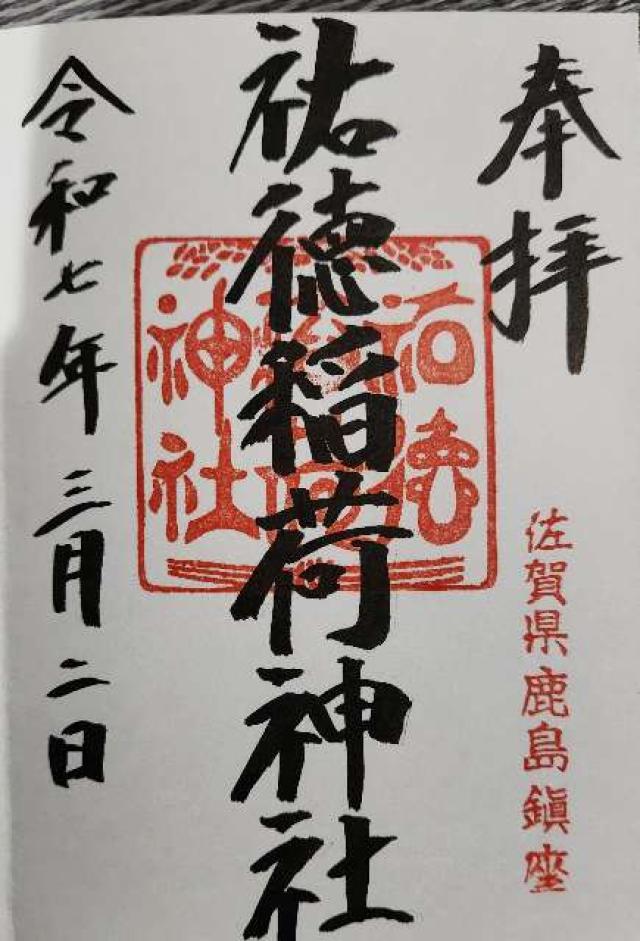 奉拝
佐賀県鹿島鎮座
祐徳稲荷神社
祐徳稲荷神社
令和七年三月二日